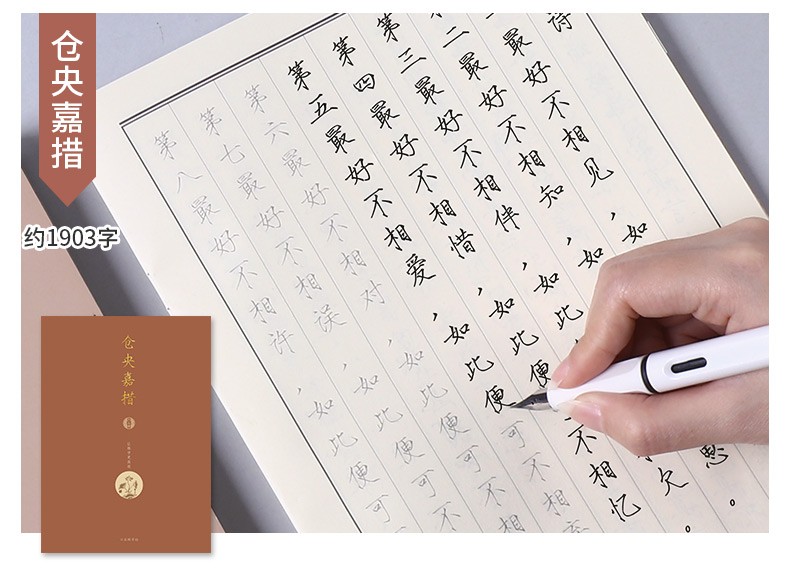 仓央嘉措
约1903字
仓央嘉措
诗
一最好不相见，如
二最好不相知，如 思。
三最好不相伴，如此 欠。
第四最好不相惜，如此便 不相忆
第五最好不相爱，如此便可不相
第六最好不相对，如此便可不相
第七最好不相误，如此便可不
第八最好不相许，如此便可